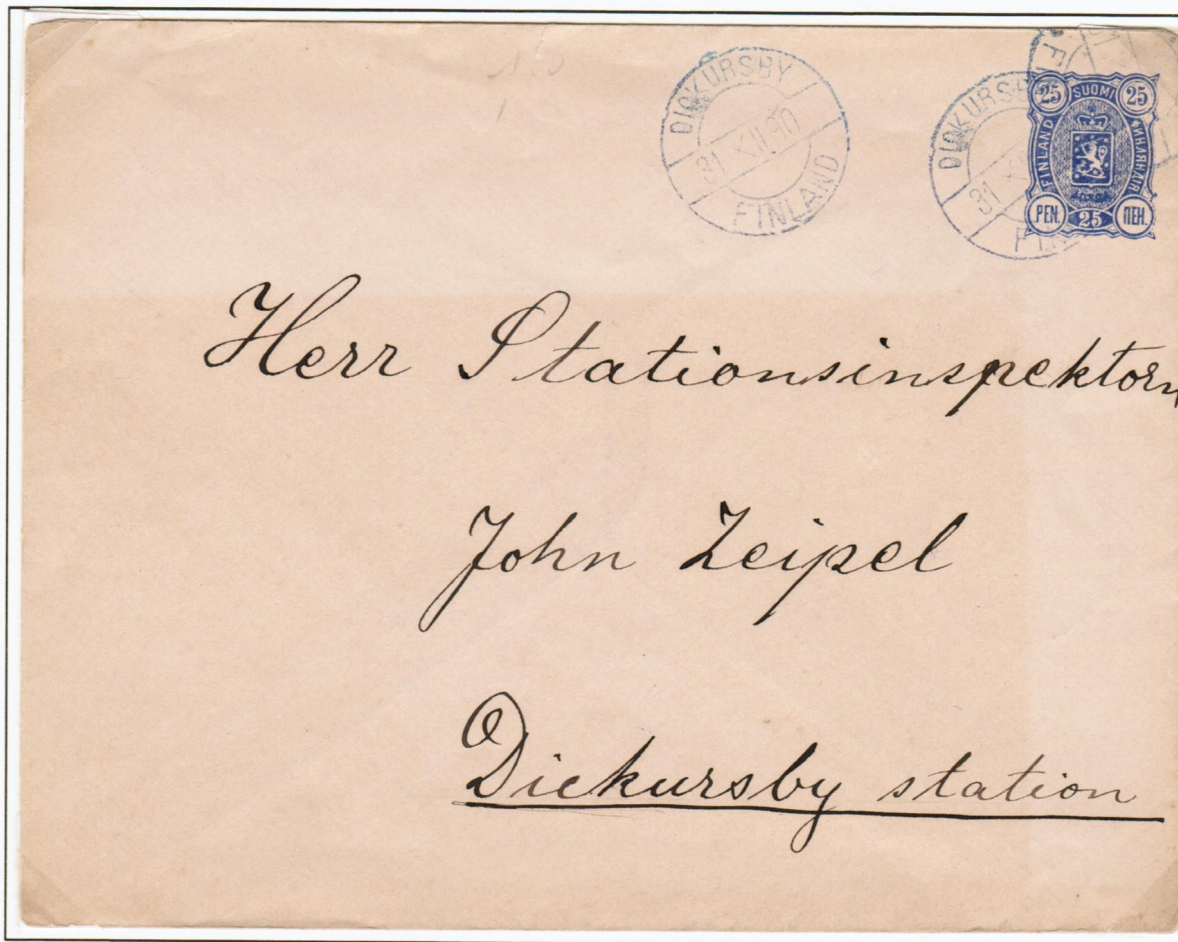 DICKURSBY
31 XII 90
FINLAND
DICKURSBY
31
25 SUOMI 25
FINLAND
ФИНЛЯНДІЯ
PEN. 25 ПЕН.
Herr Stationsinspektorn
John Zeipel
Dickursby station